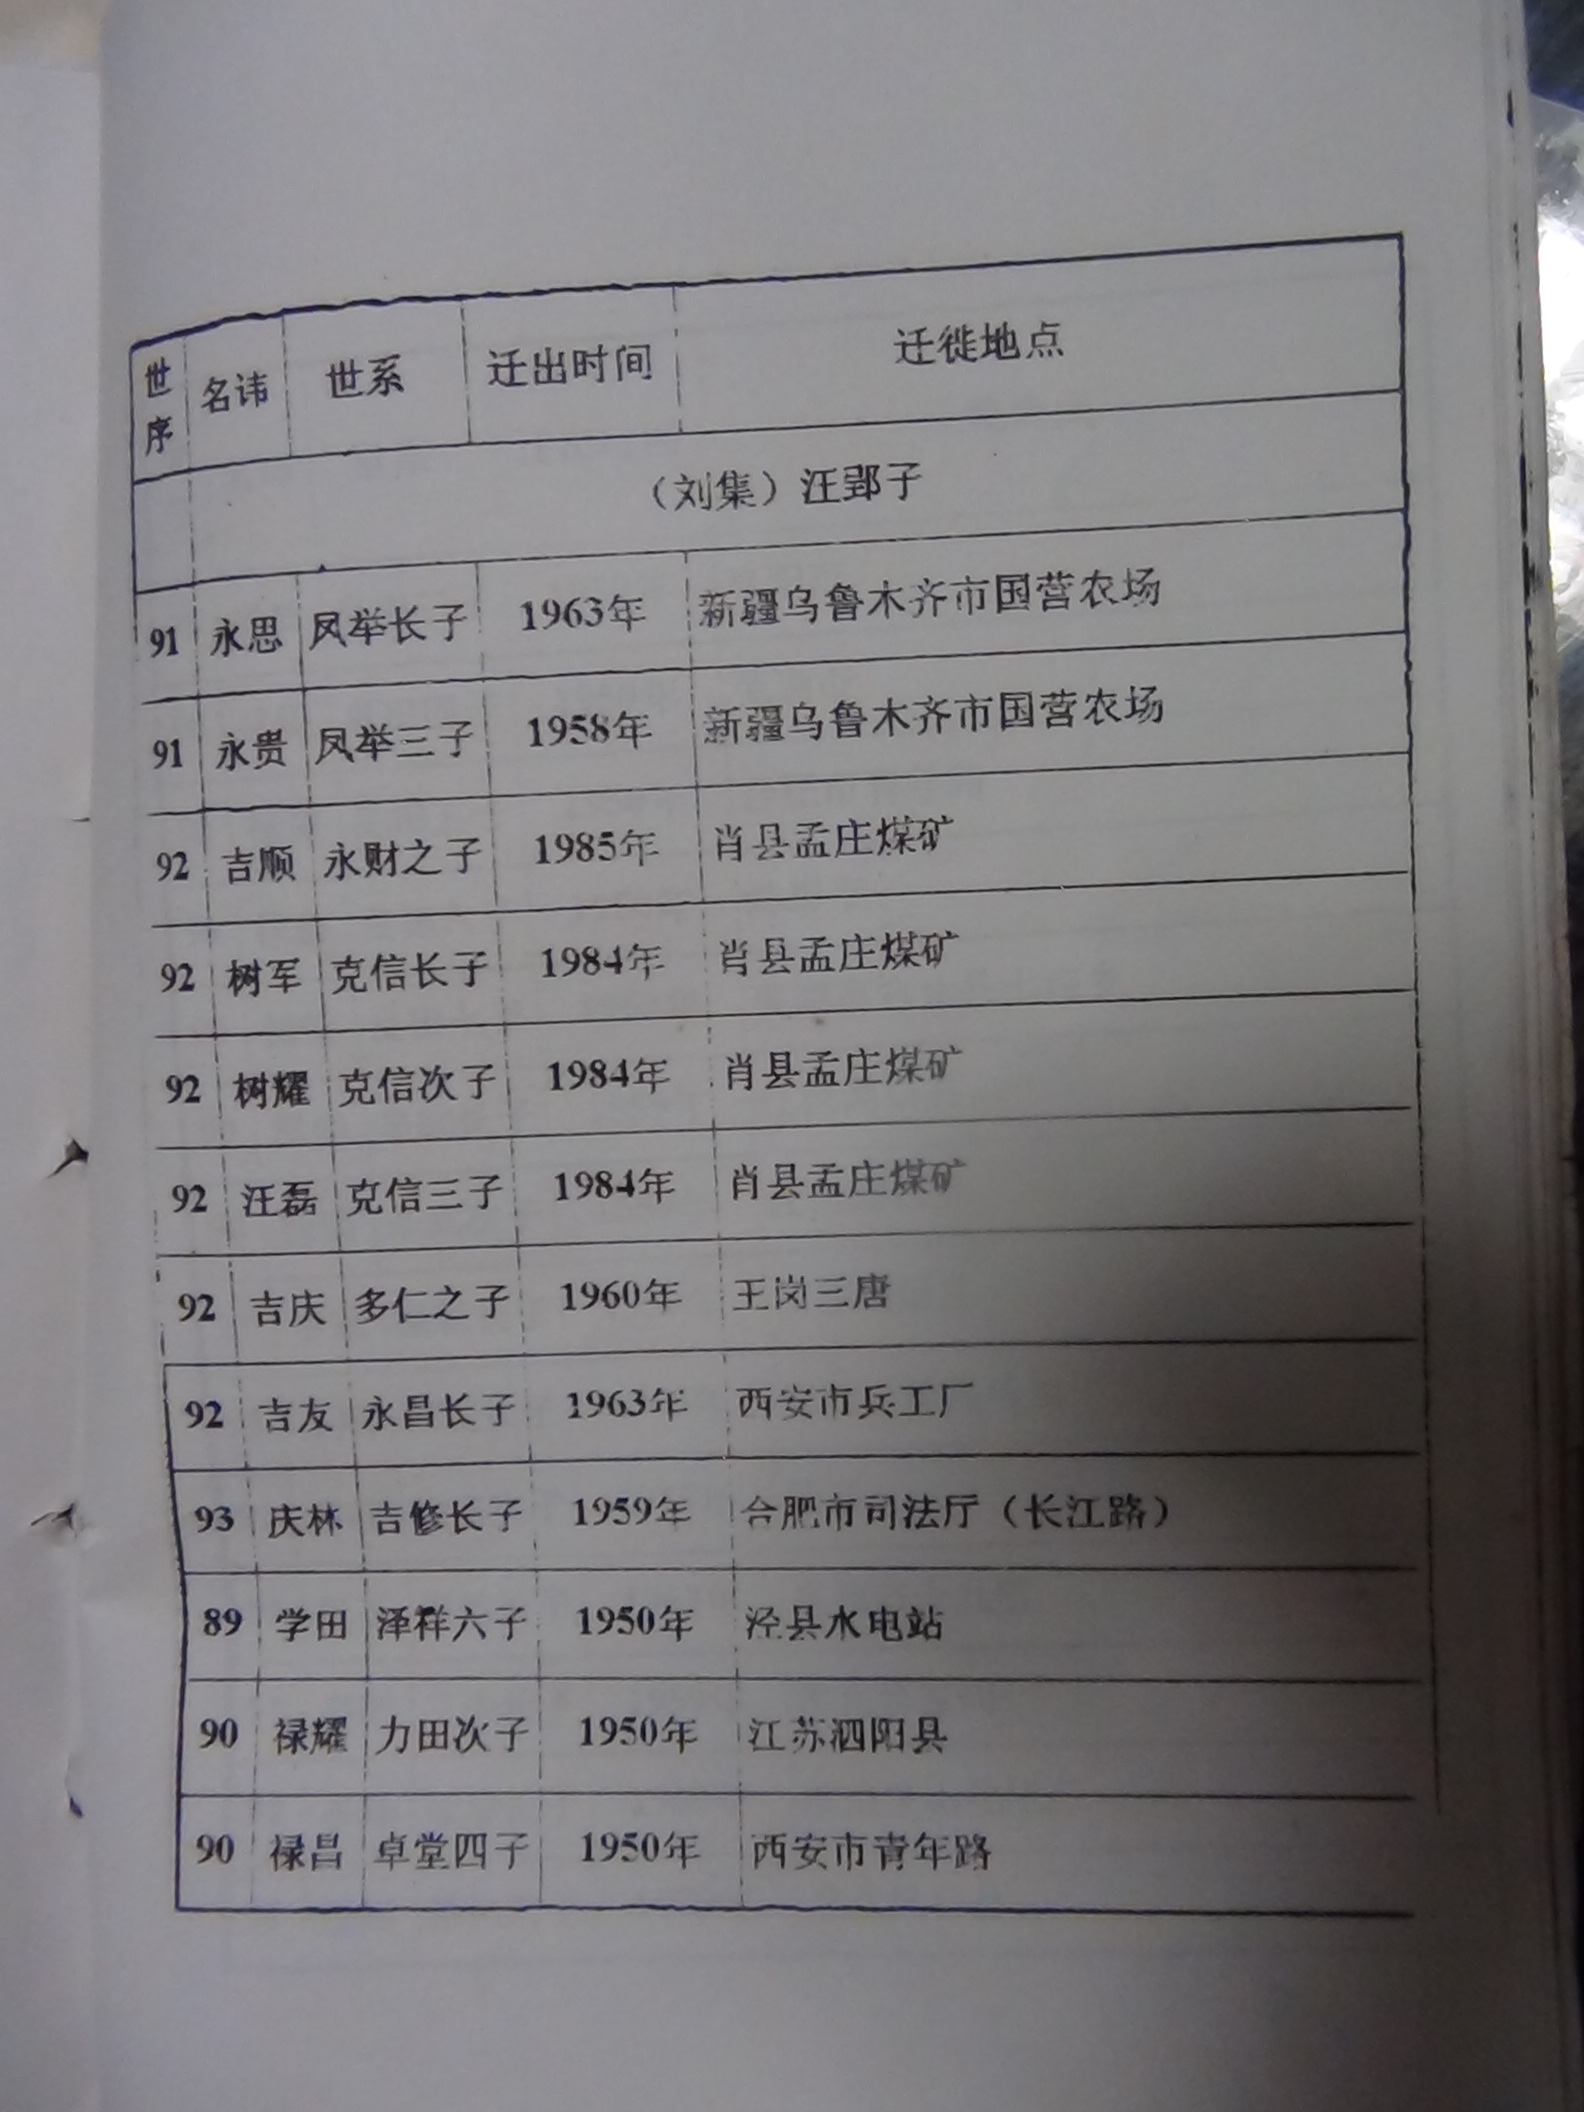 世序 名讳 世系 迁出时间 迁徙地点
（刘集）汪郢子
91 永思 凤举长子 1963年 新疆乌鲁木齐市国营农场
91 永贵 凤举三子 1958年 新疆乌鲁木齐市国营农场
92 吉顺 永财之子 1985年 肖县孟庄煤矿
92 树军 克信长子 1984年 肖县孟庄煤矿
92 树耀 克信次子 1984年 肖县孟庄煤矿
92 汪磊 克信三子 1984年 肖县孟庄煤矿
92 吉庆 多仁之子 1960年 王岗三唐
92 吉友 永昌长子 1963年 西安市兵工厂
93 庆林 吉修长子 1959年 合肥市司法厅（长江路）
89 学田 泽祥六子 1950年 泾县水电站
90 禄耀 力田次子 1950年 江苏泗阳县
90 禄昌 卓堂四子 1950年 西安市青年路